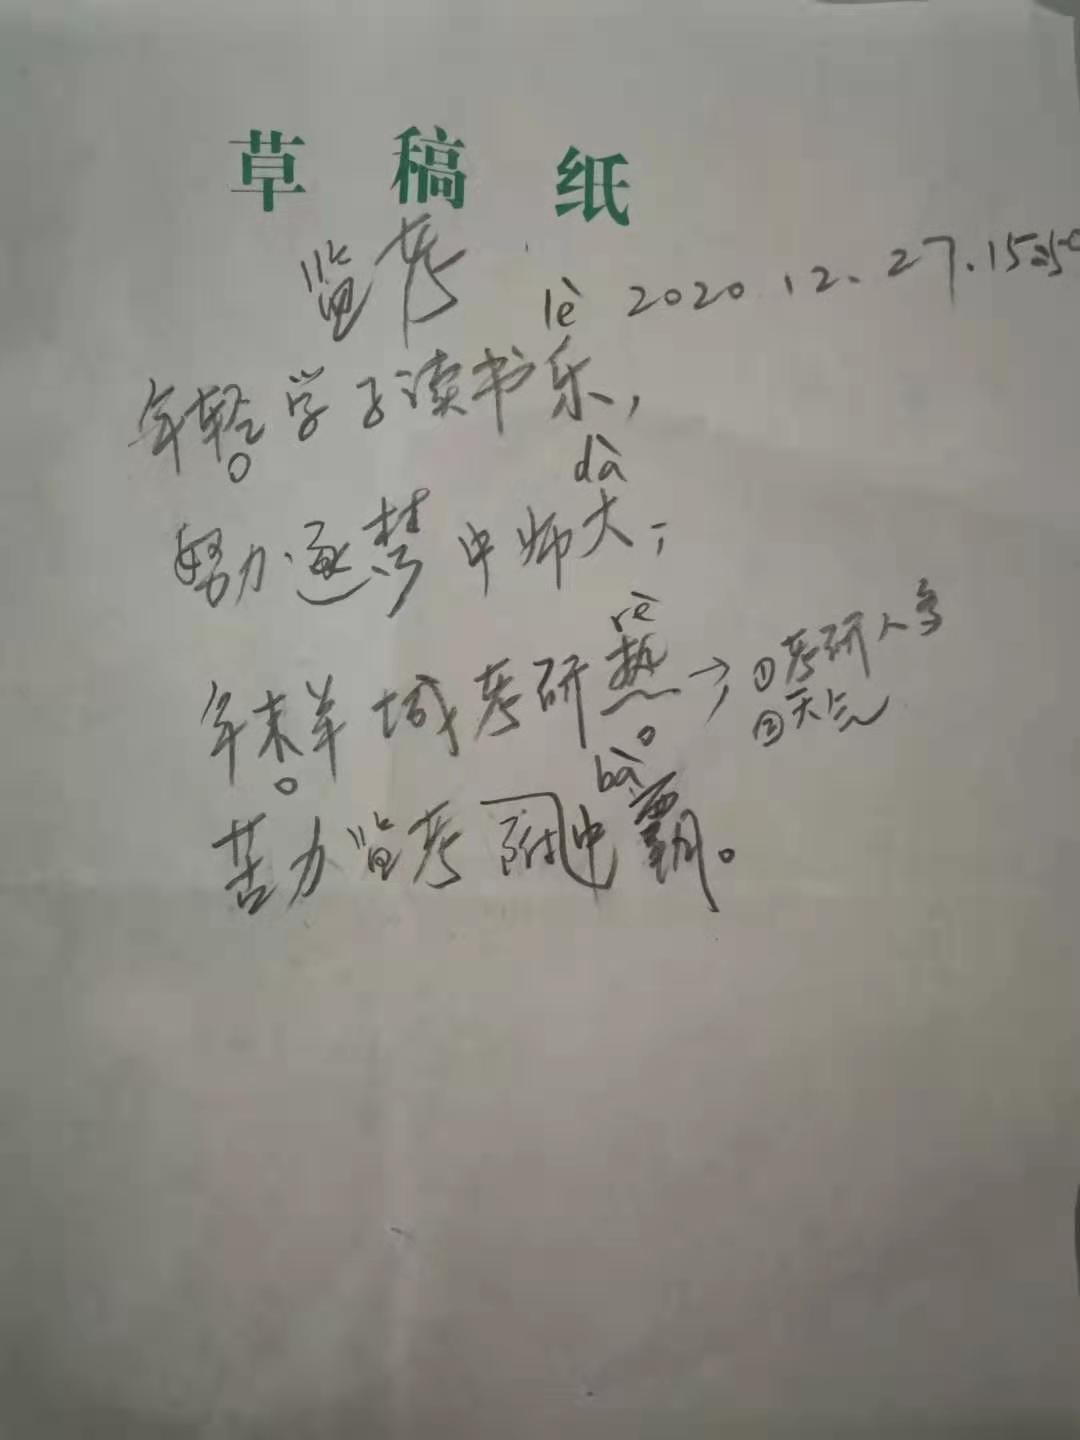 草稿纸
监考
lè 2020.12.27.15:50
年轻学子读书乐，
dà
努力逐梦中师大；
rè
年末羊城考研热。→①考研人多
②天气
bà
苦力监考附中霸。